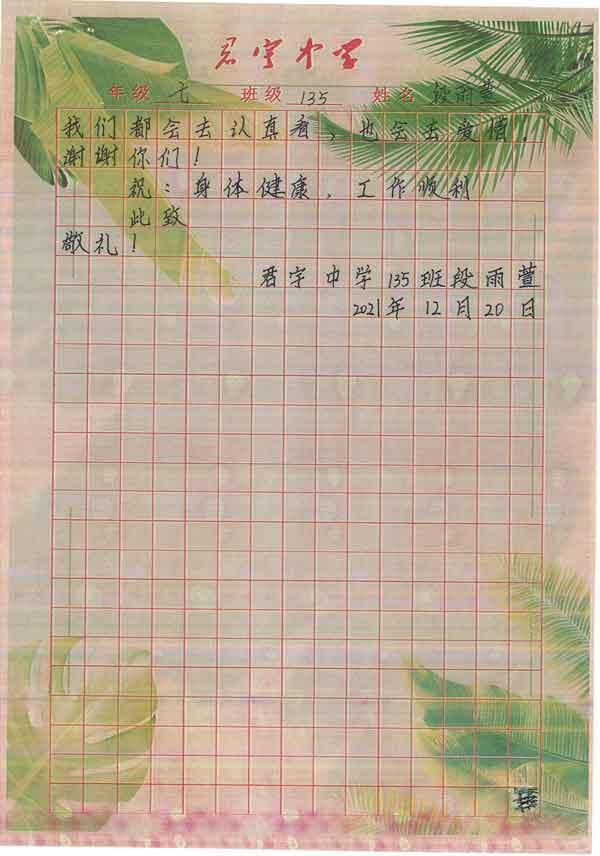 君宇中学
年级 七 班级 135 姓名 段雨萱
我们都会去认真看，也会去爱惜，
谢谢你们！
祝：身体健康，工作顺利
此致
敬礼！
君宇中学135班段雨萱
2021年12月20日